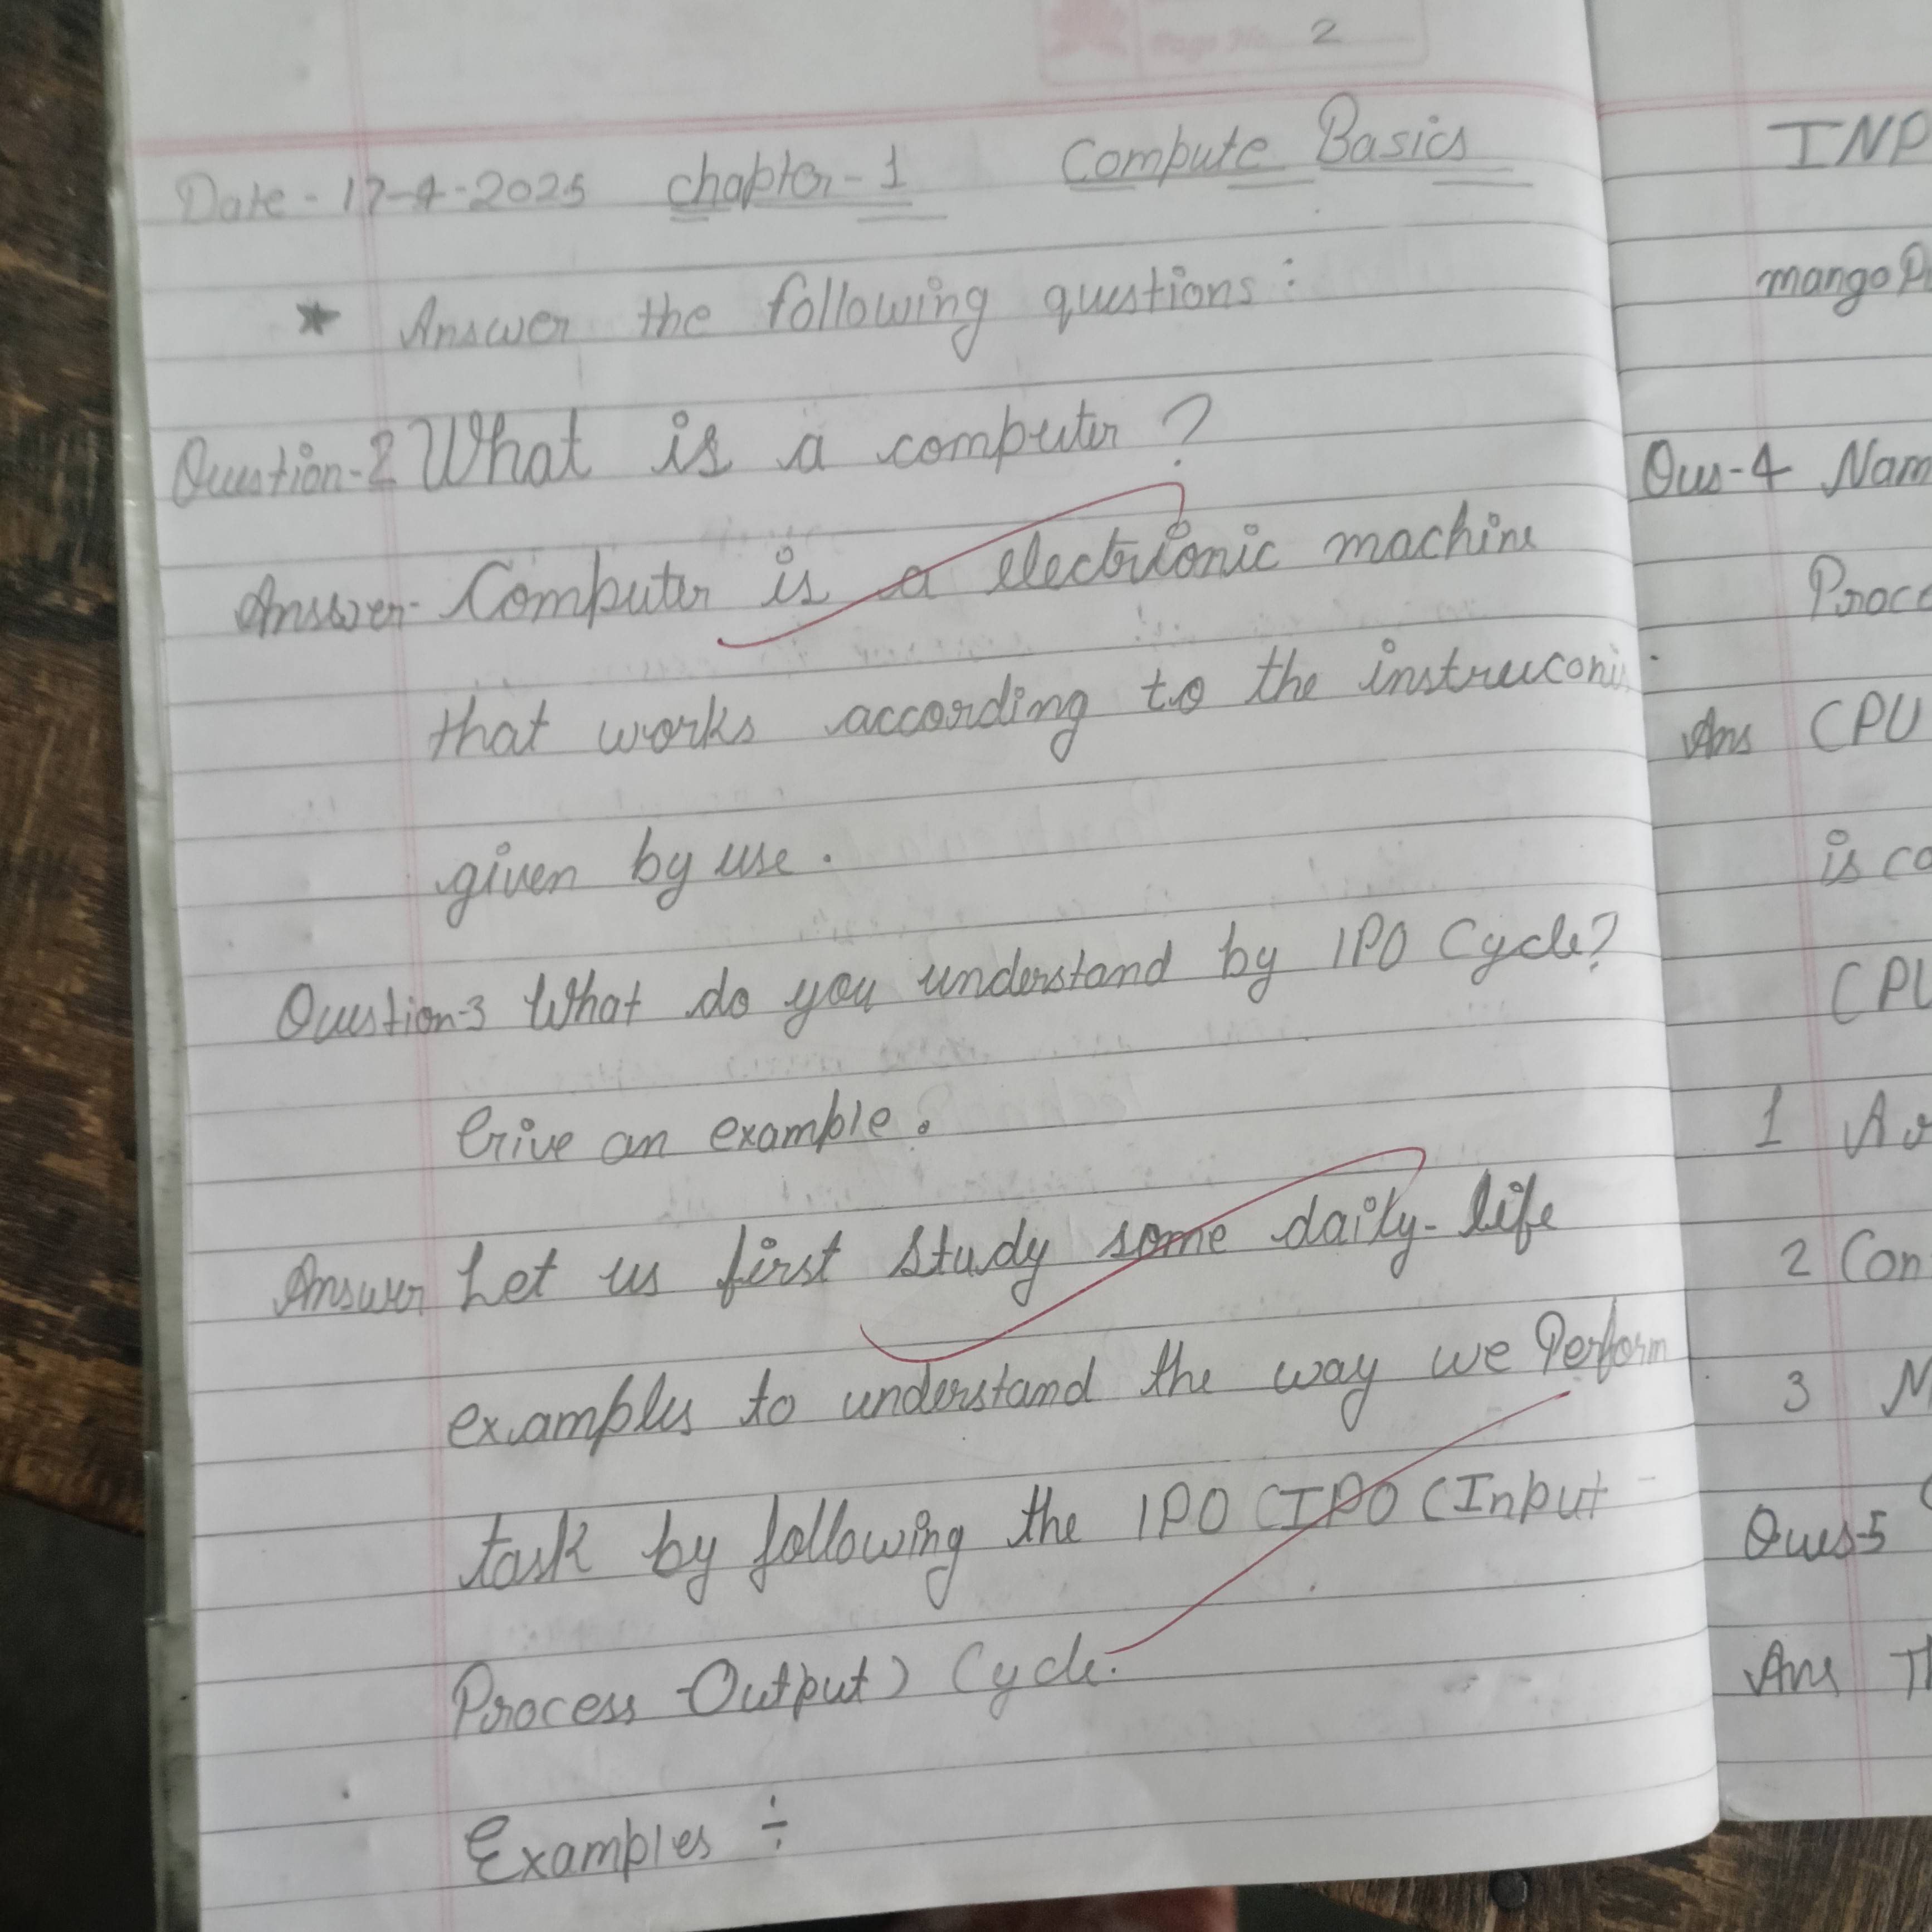 Page No. 2
Date - 17-4-2025 chapter-1 Compute Basics
* Answer the following questions:
Question-2 What is a computer?
Answer- Computer is a electrionic machine
that works according to the instruconis
given by use.
Question-3 What do you understand by IPO Cycle?
Give an example.
Answer Let us first study some daily-life
examples to understand the way we Perform
task by following the IPO (IPO (Input -
Process -Output) Cycle.
Examples ÷
INP
mango P
Ques-4 Nam
Proce
Ans CPU
is co
CPU
1 A
2 Con
3 M
Ques-5
Ans Th